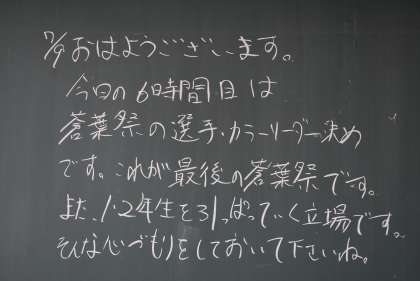 7/9 おはようございます。
今日の6時間目は
蒼葉祭の選手・カラーリーダー決め
です。これが最後の蒼葉祭です。
また、1・2年生を引っぱっていく立場です。
そんな心づもりをしておいて下さいね。